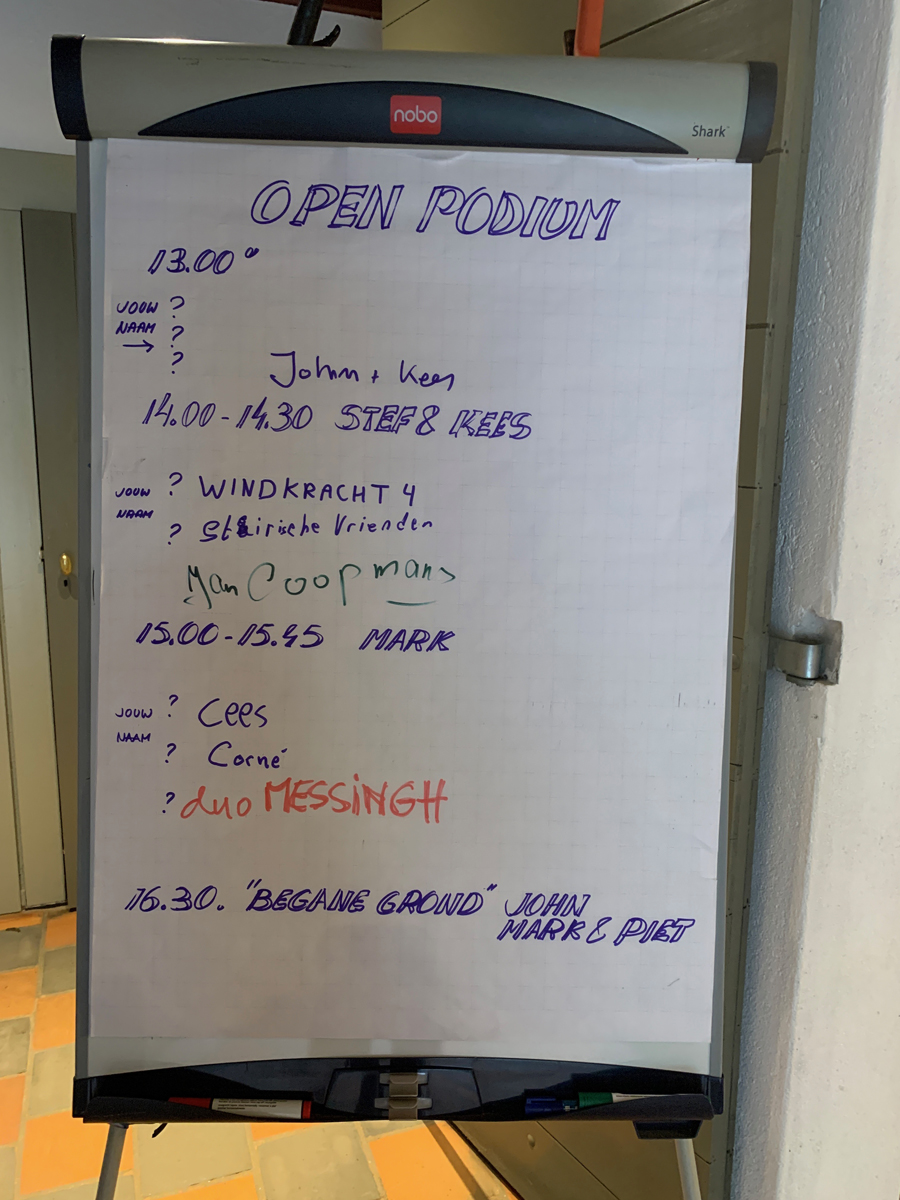 nobo
Shark™
OPEN PODIUM
13.00"
JOUW ?
NAAM ?
→ ?
John + Kees
14.00 - 14.30 STEF & KEES
JOUW ? WINDKRACHT 4
NAAM ? Steirische Vrienden
Jan Coopmans
15.00 - 15.45 MARK
JOUW ? Cees
NAAM ? Corné
? duo MESSiNGH
16.30. "BEGANE GROND" JOHN
MARK & PIET